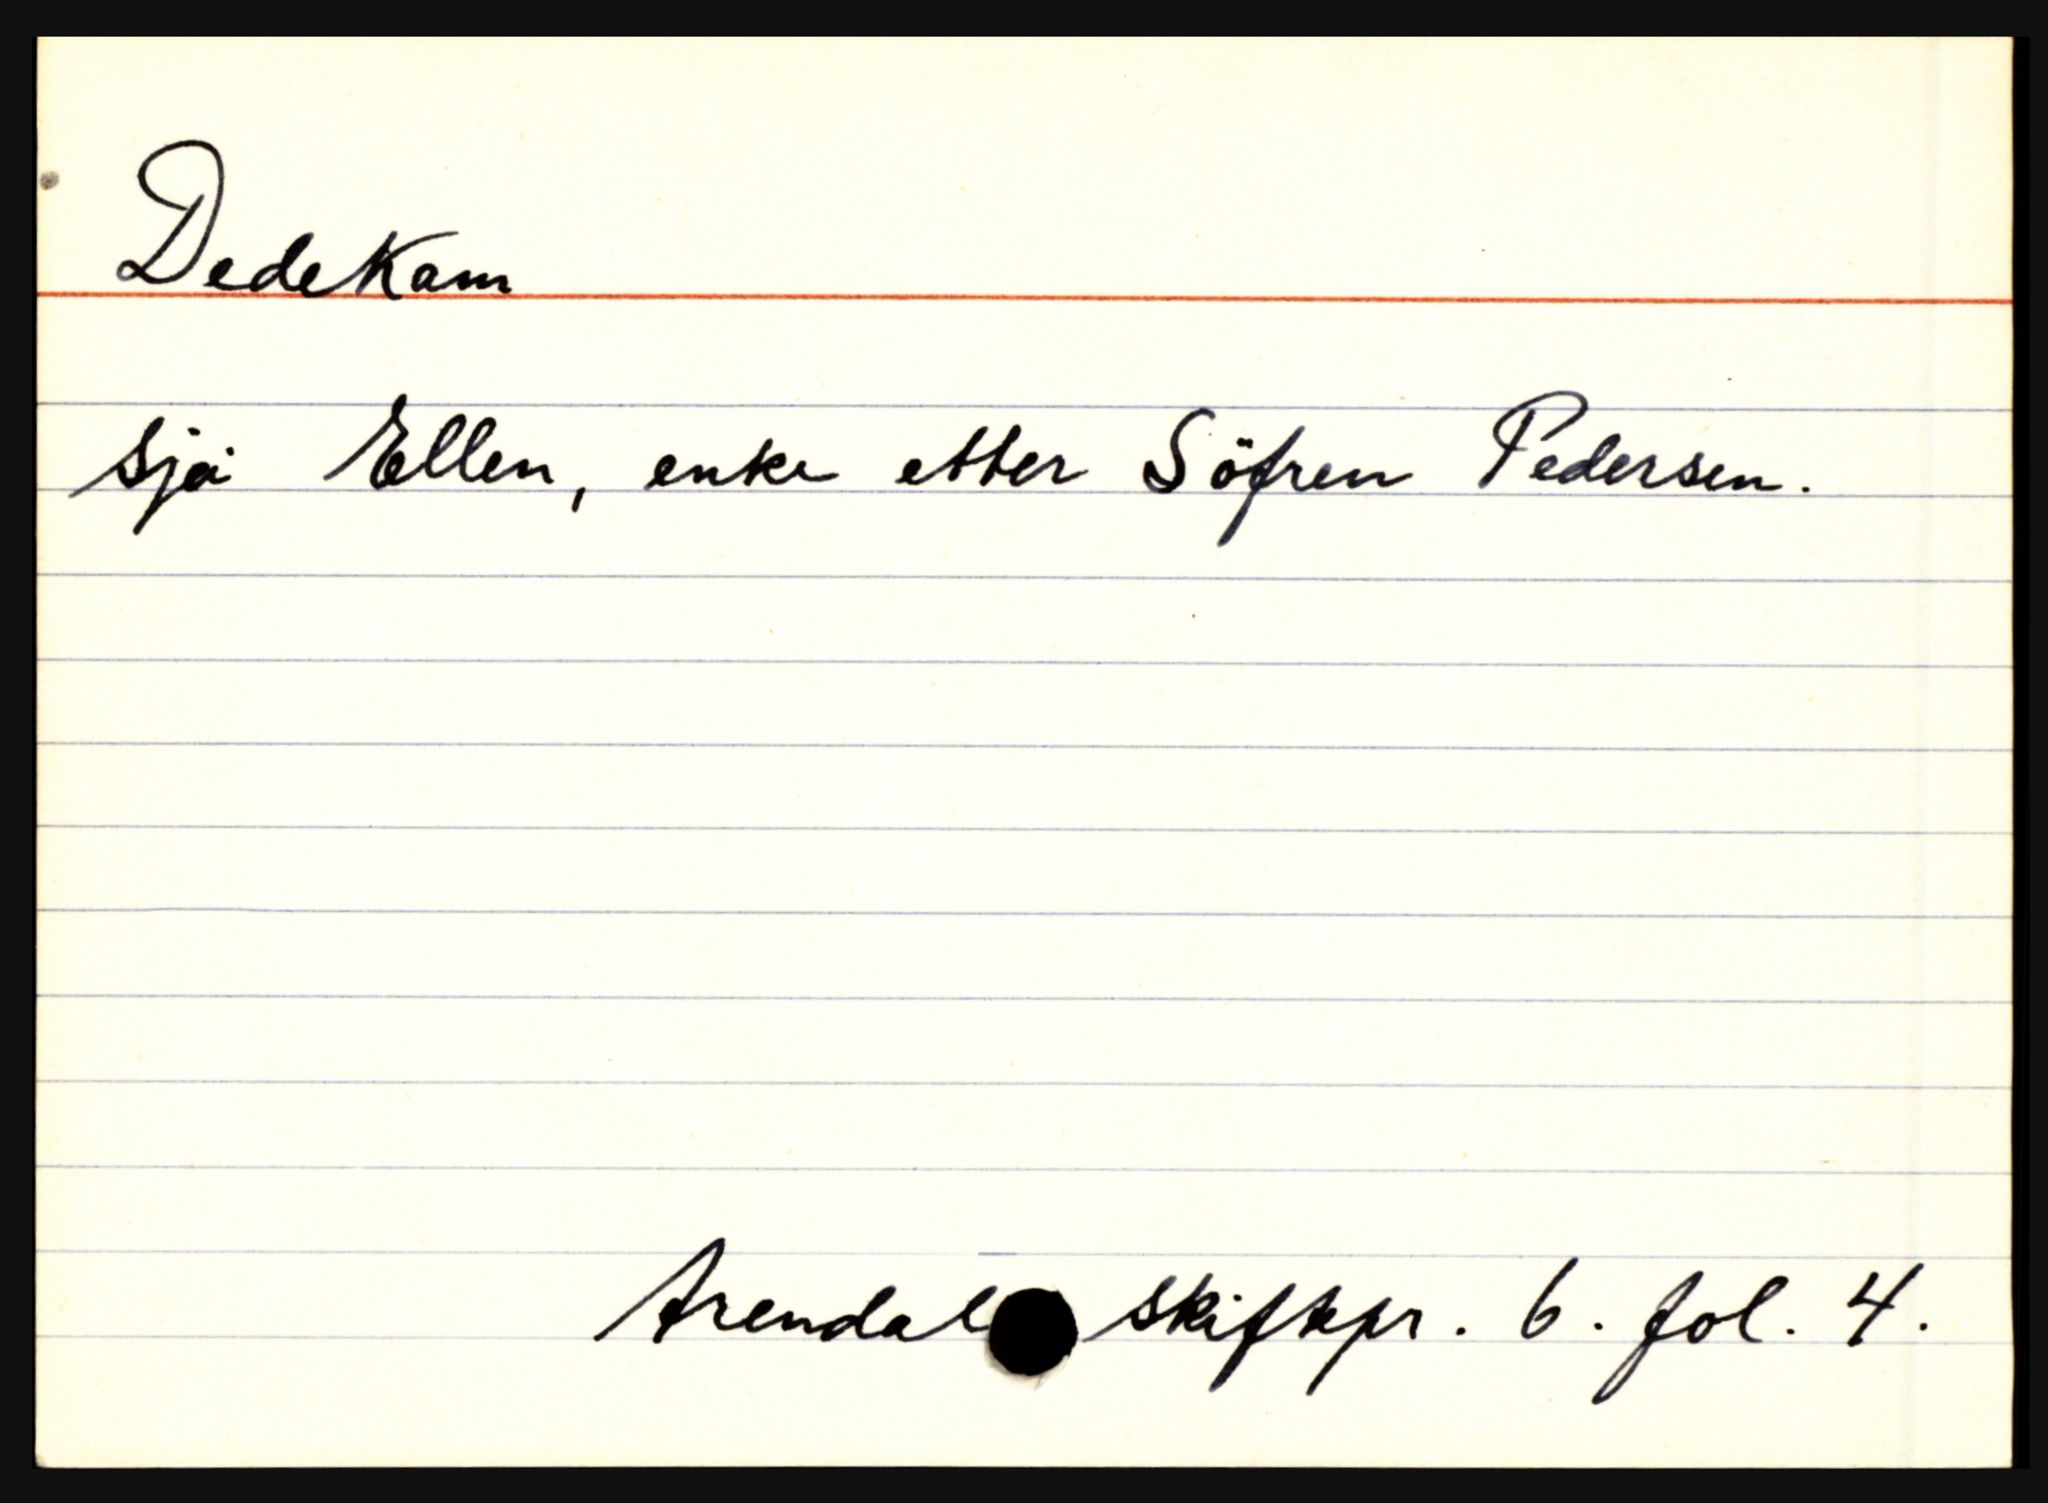 Dedekam
sjå Ellen, enke etter Söfren Pedersen.
Arendal skiftepr. 6. fol. 4.